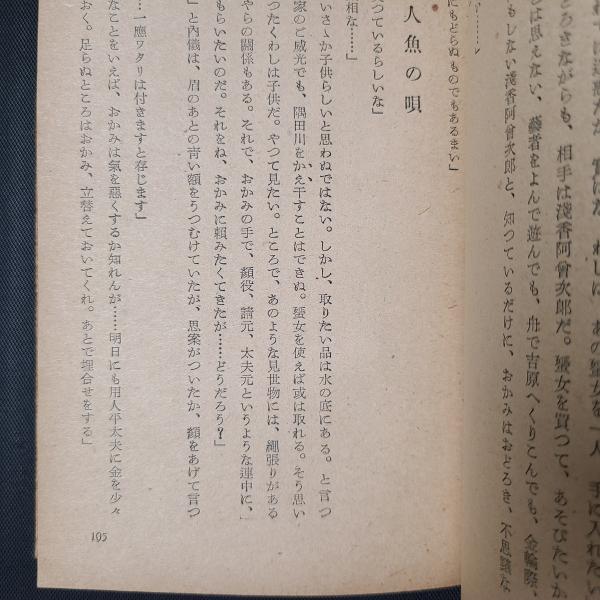 れては迷惑だが、實はな、わしに、あの蜑女を一人、手に入れたい
ろきながらも、相手は淺香阿曾次郎だ。蜑女を買つて、あそびたいか
は思えない、藝者をよんで遊んでも、舟で吉原へくりこんでも、金輪際、
もしない淺香阿曾次郎と、知つているだけに、おかみはおどろき、不思議な
にもどらぬものでもあるまい」
人魚の唄
つているらしいな」
相な……」
いさゝか子供らしいと思わぬではない。しかし、取りたい品は水の底にある。と言つ
家のご威光でも、隅田川をかえ干すことはできぬ。蜑女を使えば或は取れる。そう思い
つたくわしは子供だ。やつて見たい。ところで、あのような見世物には、繩張りがある
やらの關係もある。それで、おかみの手で、顏役、請元、太夫元というような連中に、
もらいたいのだ。それをね、おかみに賴みたくてきたが……どうだろう？」
」と內儀は、眉のあとの靑い額をうつむけていたが、思案がついたか、顏をあげて言つ
…一應ワタリは付きますと存じます」
なことをいえば、おかみは氣を惡くするか知れんが……明日にも用人平太夫に金を少々
おく。足らぬところはおかみ、立替えておいてくれ。あとで埋合せをする」
195